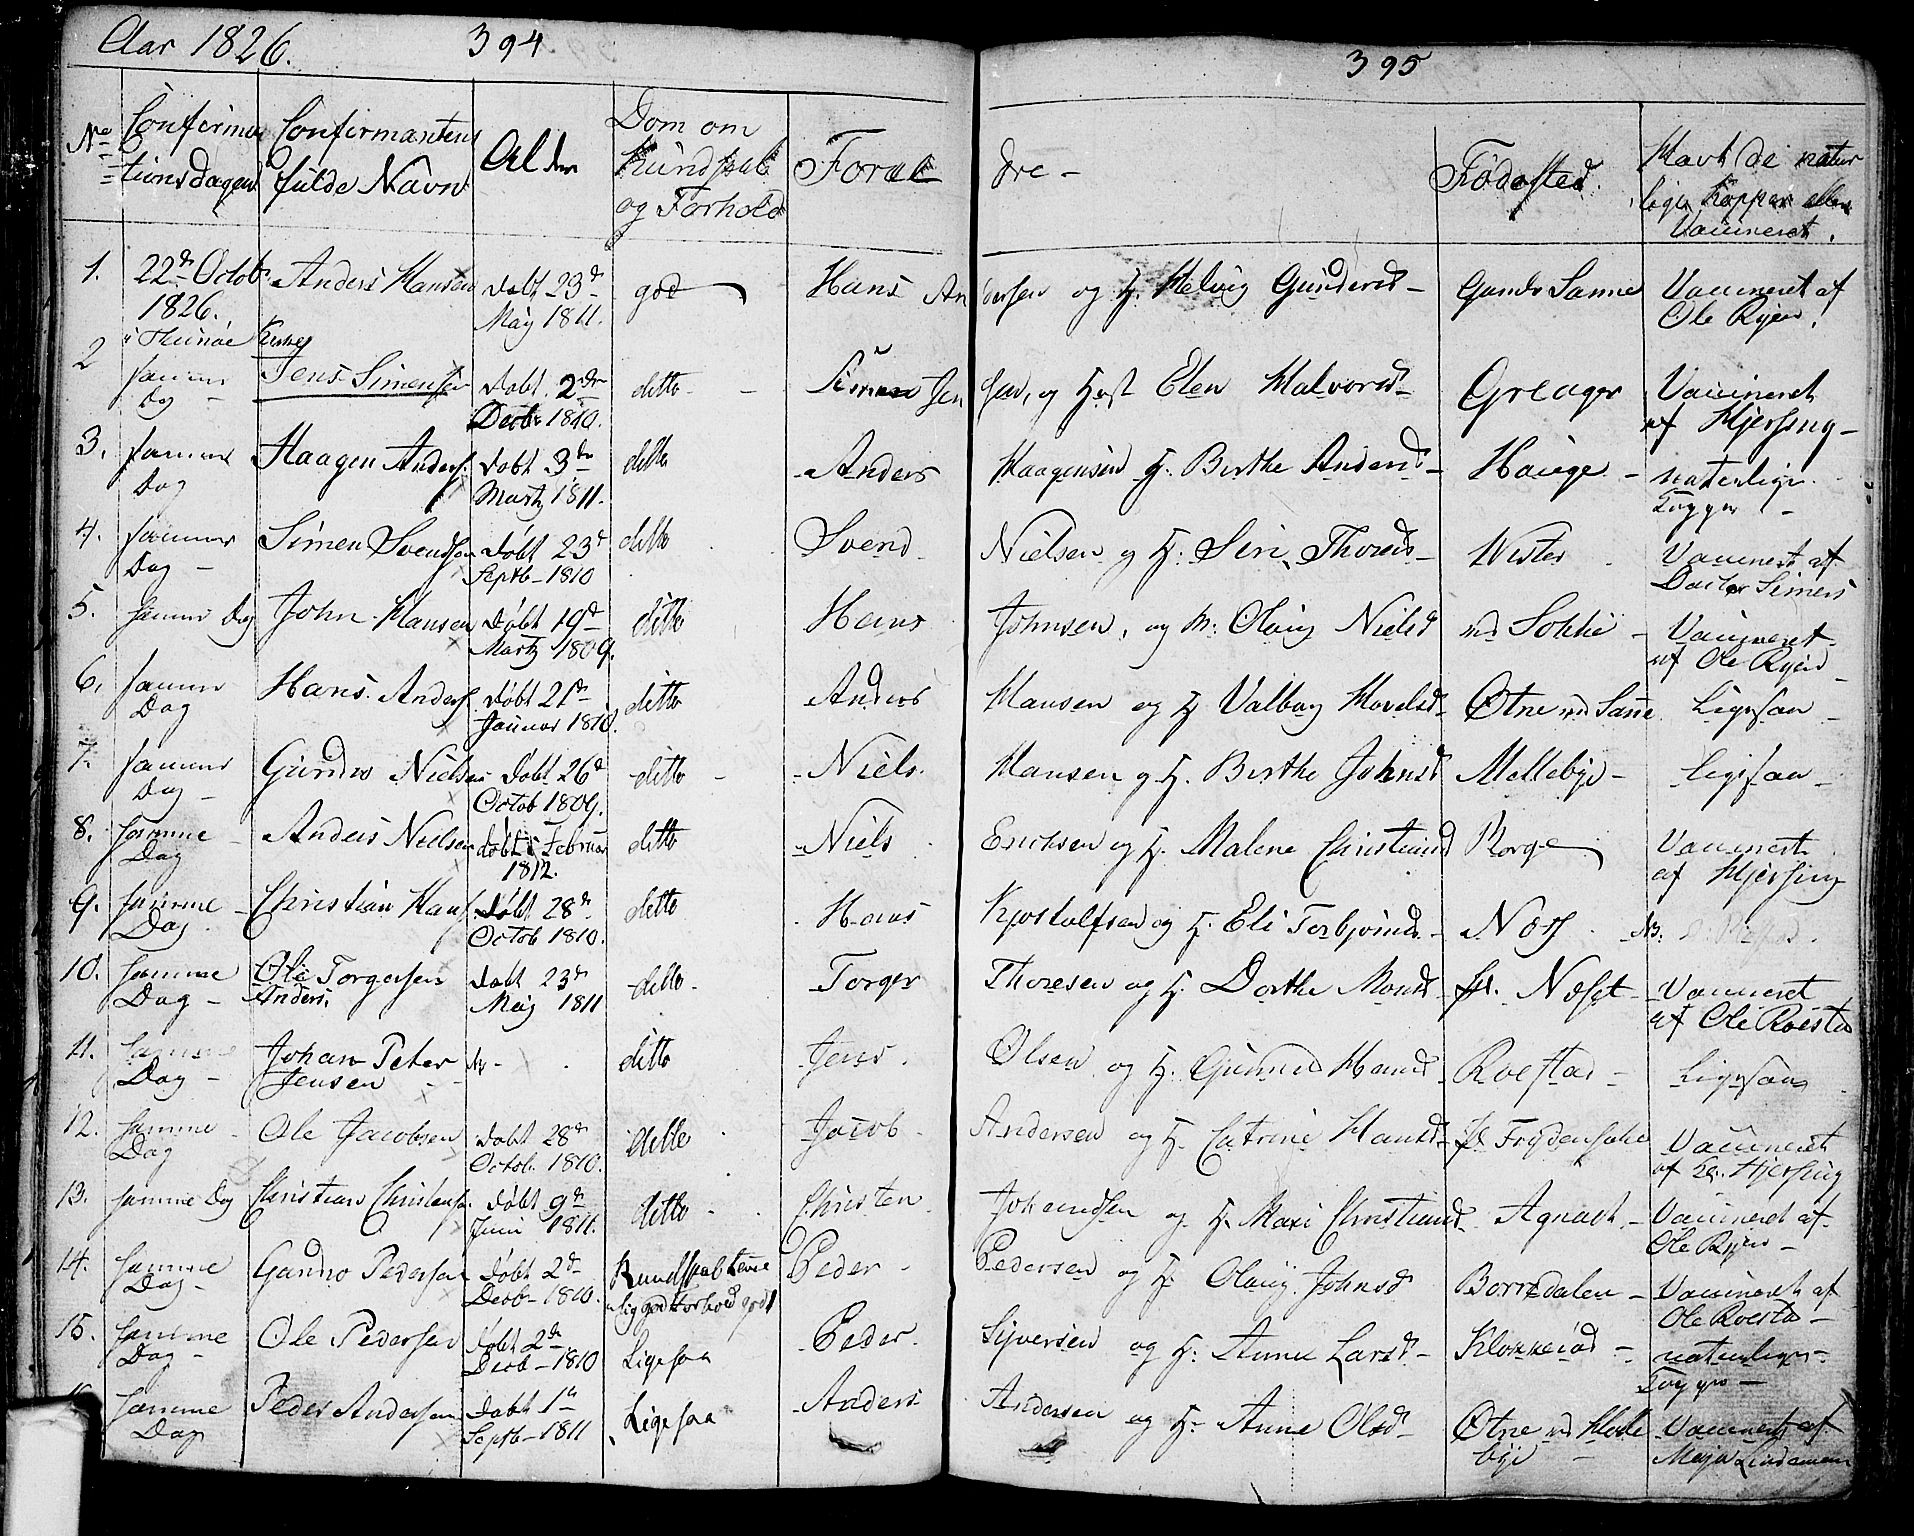 Aar 1826. 394
395
No Confirmationsdagen Confirmantens fulde Navn Alder Dom om Kundskab og Forhold Foræl dre - Fødested. Havt de naturlige Kopper eller Vaccineret.
1. 22de Octob. Anders Hansen Døbt 23de god Hans An dersen og H. Helvig Gunders Sanne Vaccineret af
1826. May 1811. Ole Ryen.
"Thunøe Kirke
2 samme Jens Simensen Døbt 2den ditto - Simen Jen sen, og Hust Elen Halvorsd- Greager Vaccineret
Dag - Decbr 1810. af Hjersing -
3. samme Haagen Anders. Døbt 3de ditto Anders Haagensen H. Berthe Andersd- Hauge - naturlige
Dag Martz 1811. Kopper -
4. samme Simen Svendsen Døbt 23de ditto Svend Nielsen og H. Siri Thoresd- Wister Vaccineret af
Dag - Septb- 1810 Doctor Simers
5. samme Dag John Hansen Døbt 19de ditto Hans Johnsen, og H: Olaug Nielsd - Vaccineret
Martz 1809. af Ole Ryen -
6. samme Hans Anders. Døbt 21de ditto Anders Hansen og H Valbog Havelsd- Øtne Ligesaa -
Dag Januar 1810.
7. samme Gunder Nielsen Døbt 26de ditto - Niels. Hansen og H. Berthe Johnsd Mellebye - Ligesaa -
Dag - Octob 1809.
8. Samme - Anders Nielsen døbt i Februar ditto Niels Ericksen og H. Malene Christiansd Korge Vaccineret
Dag 1812. af Hjersing
9. samme - Christian Hans Døbt 28de ditto Hans og H. Eli Torbjørnsd- Næss NB.
Dag Octob 1810.
10. samme Ole Torgersen Døbt 23de ditto - Torger Thoresen og H. Dorthe Monsd - Næset - Vaccineret
Dag - Anders. May 1811 af Ole Roestad
11. samme Johan Peter ditto Jens Olsen og H. Hansd Roestad - Ligesaa
Dag - Jensen
12. samme Ole Jacobsen Døbt 28de ditto Jacob Andersen og H. Catrine Hansd- Vaccineret
Dag Octob. 1810. af Hjersing
13. samme Dag Christian Christens. Døbt 9de ditto Christen Johansen og H. Mari Christiansd Agnæs - Vaccineret af
Juni 1811. Ole Ryen -
14. samme Gunno Pedersen Døbt 2de Kundskab temme Peder - Pedersen og H. Olaug Johnsd Borredalen - Vaccineret af
Dag - Decb- 1810. lig god Forhold godt Ole Roestad -
15. samme Ole Pedersen Døbt 2de Ligesaa Peder. Sijversen og H. Anne Larsd- Klokkeiod - naturlige
Dag - Decb- 1810 Kopper -
samme Peder Andersen Døbt 1te Ligesaa Anders Andersen og H. Anne Olsd- Øtne Vaccineret af
Dag Septb- 1811 bye - Maja Lindeman